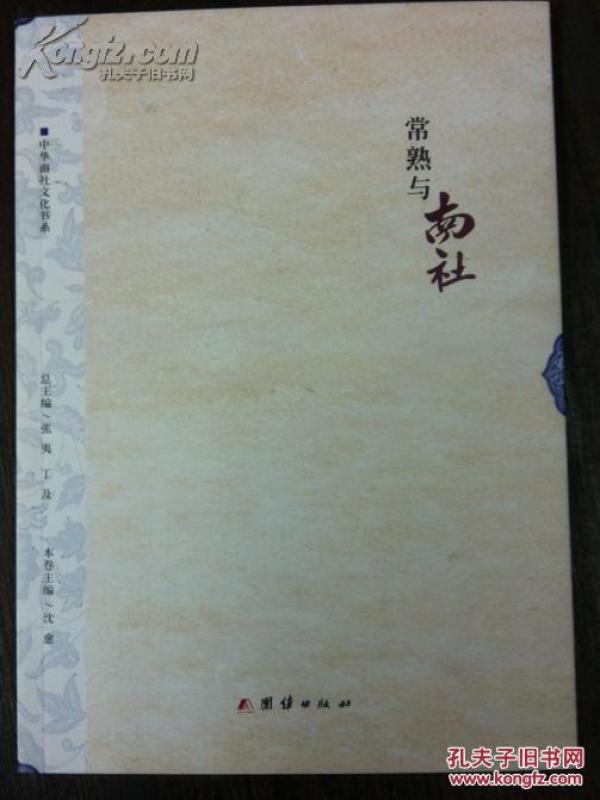 Kongfz.com
孔夫子旧书网
常熟与
南社
■中华南社文化书系
总主编/张夷 丁及
本卷主编/沈愈
团结出版社
孔夫子旧书网
www.kongfz.com